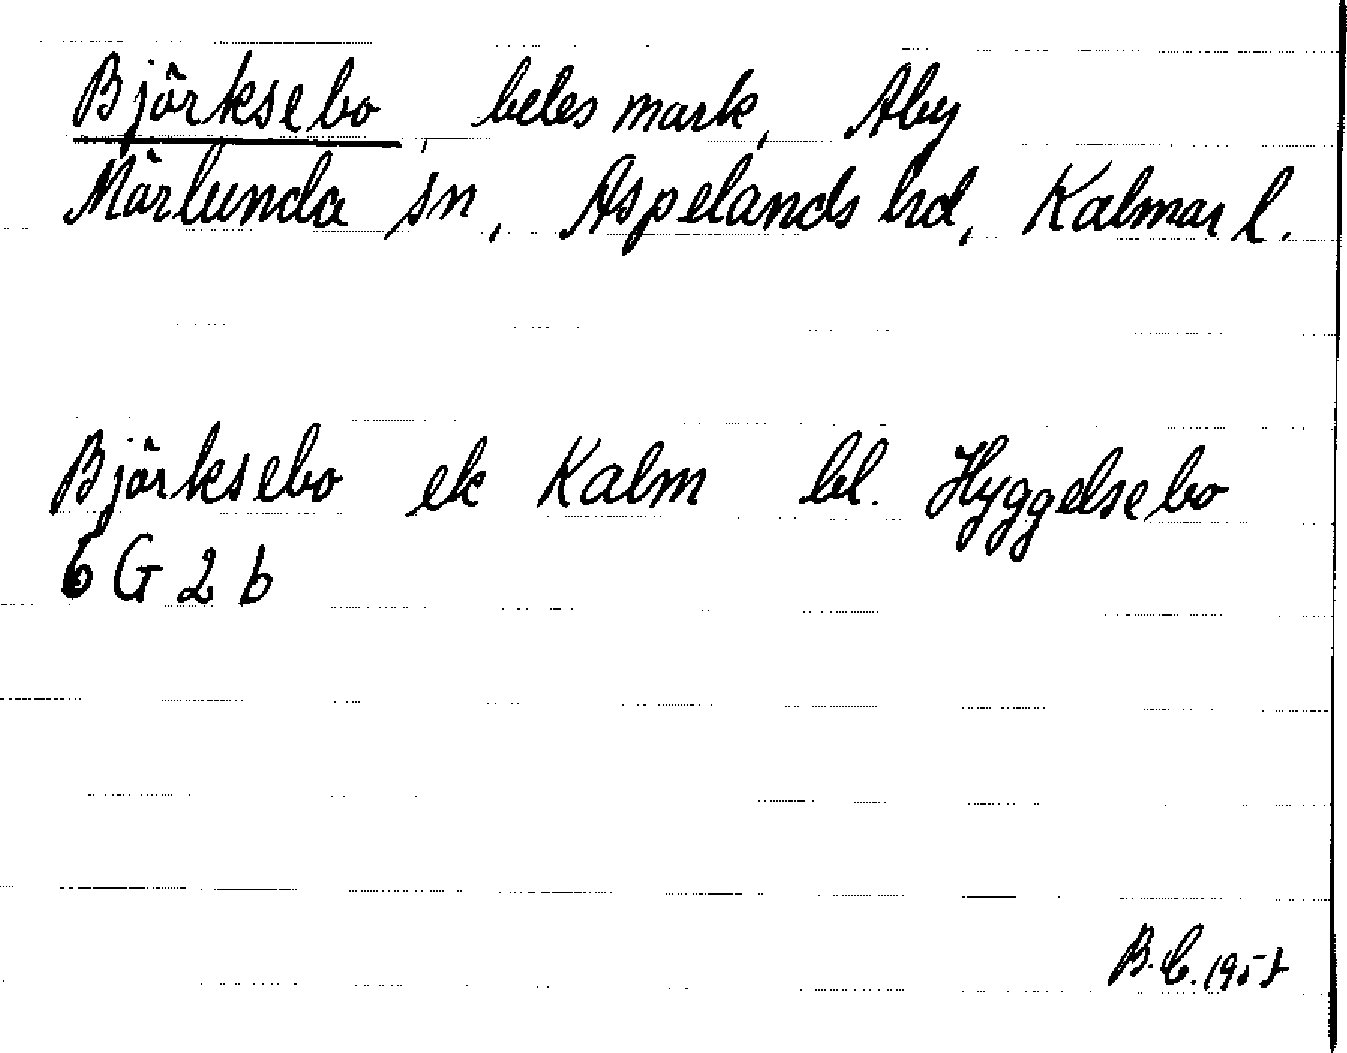 Björksebo, betesmark, Åby
Mörlunda sn, Aspelands hd, Kalmar l.
Björksebo ek Kalm bl. Hyggelsebo
6 G 2 b